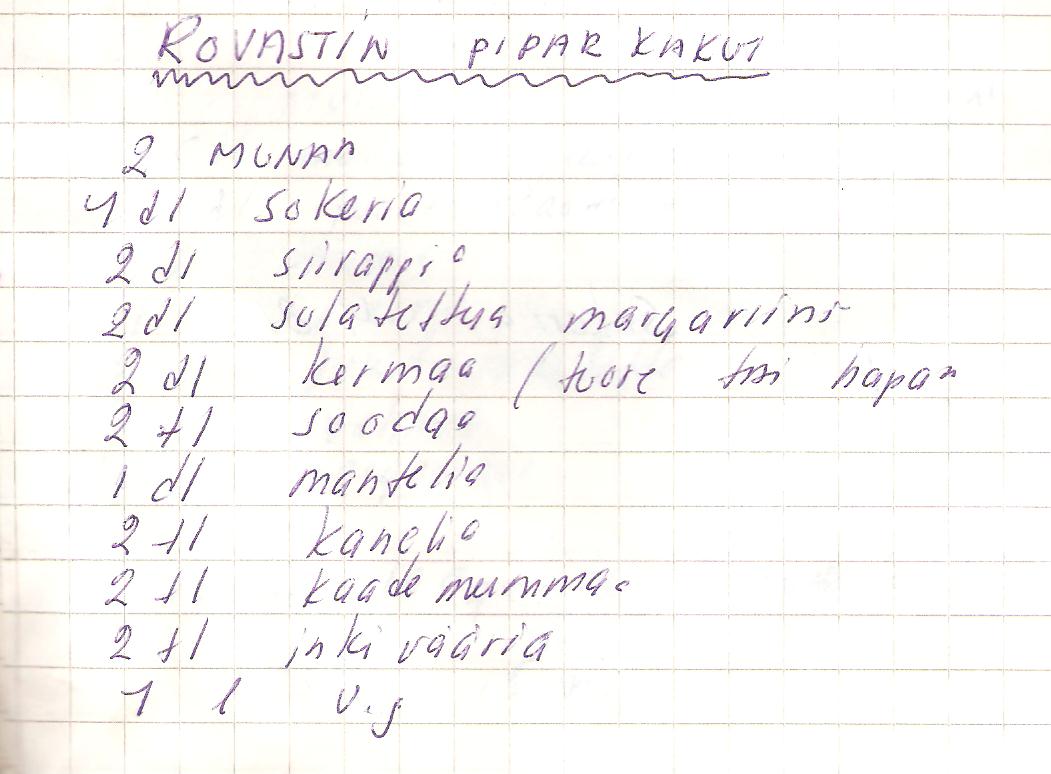 ROVASTIN PIPARKAKUT
2 MUNAA
4 dl sokeria
2 dl siirappia
2 dl sulatettua margariinia
2 dl kermaa (tuore tai hapan
2 tl soodaa
1 dl mantelia
2 tl kanelia
2 tl kaademummaa
2 tl inkivääria
1 l v.j